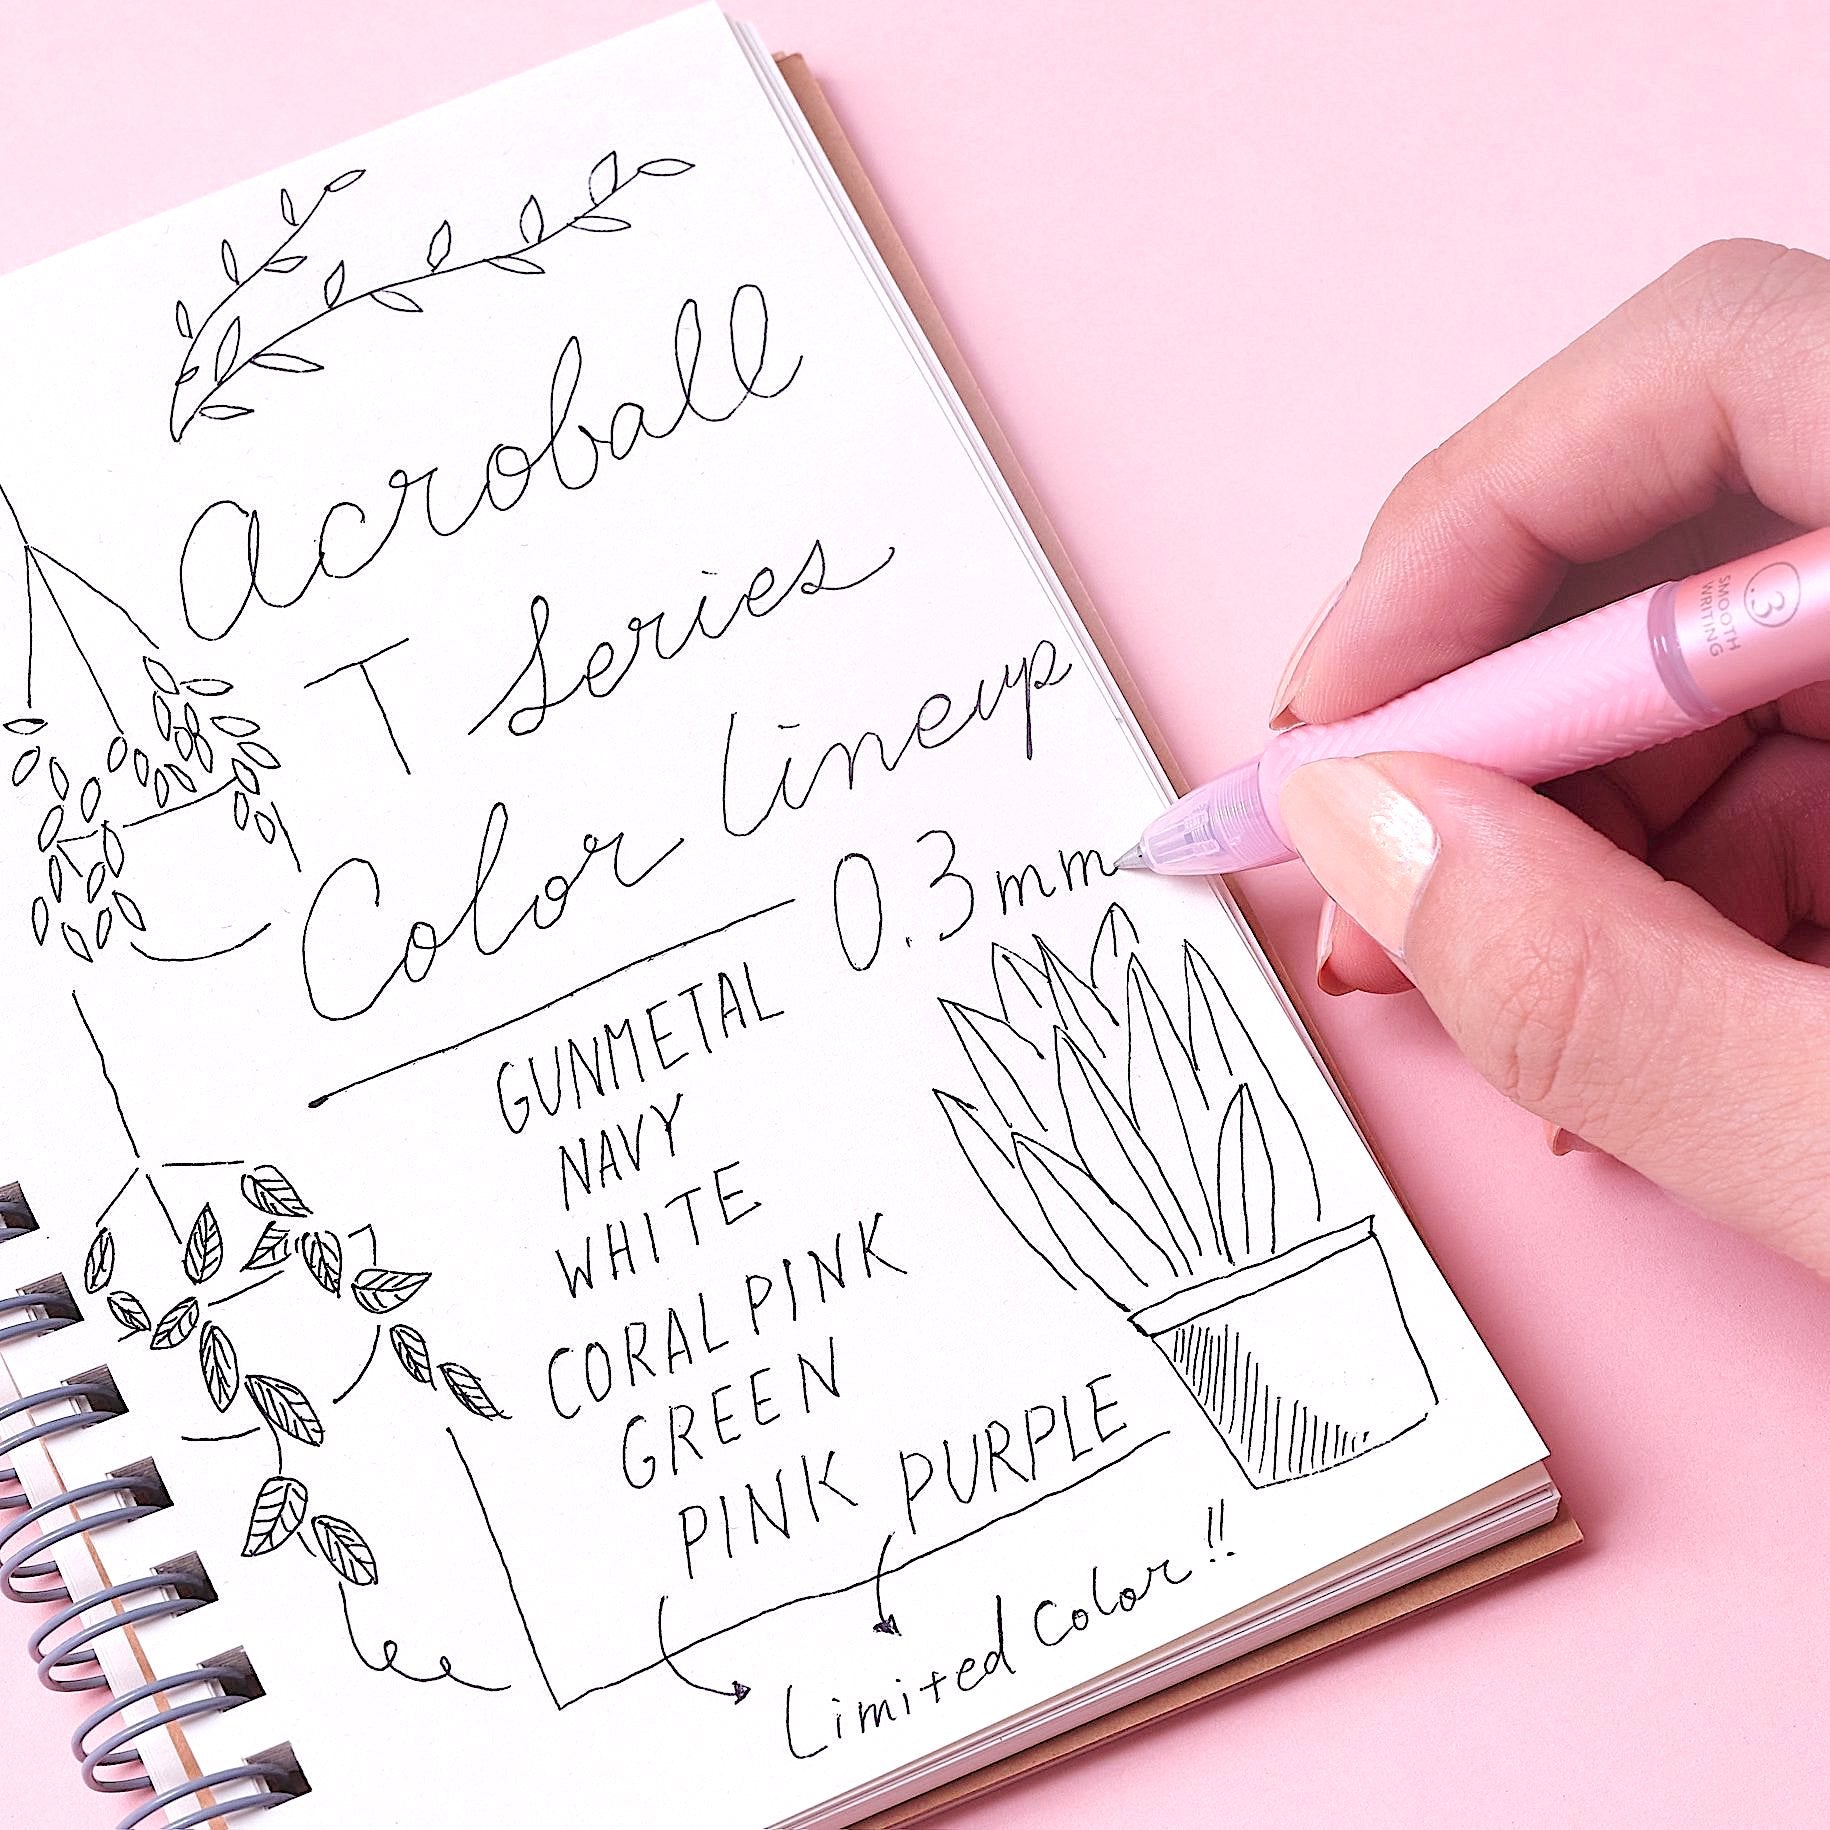 Acroball
T Series
Color Lineup
0.3mm
GUNMETAL
NAVY
WHITE
CORAL PINK
GREEN
PINK PURPLE
Limited Color!!
.3
SMOOTH
WRITING